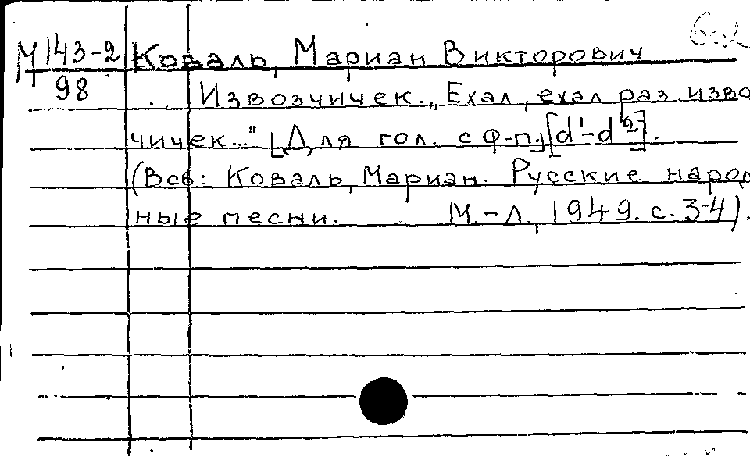 М 143-2 Коваль, Мариан Викторович
98 Извозчичек. „Ехал, ехал раз изво
чичек..." [Для гол. с ф-п.] [d¹-d²].
(В сб: Коваль, Мариан. Русские народ
ные песни. М.-Л., 1949. с. 3-4).